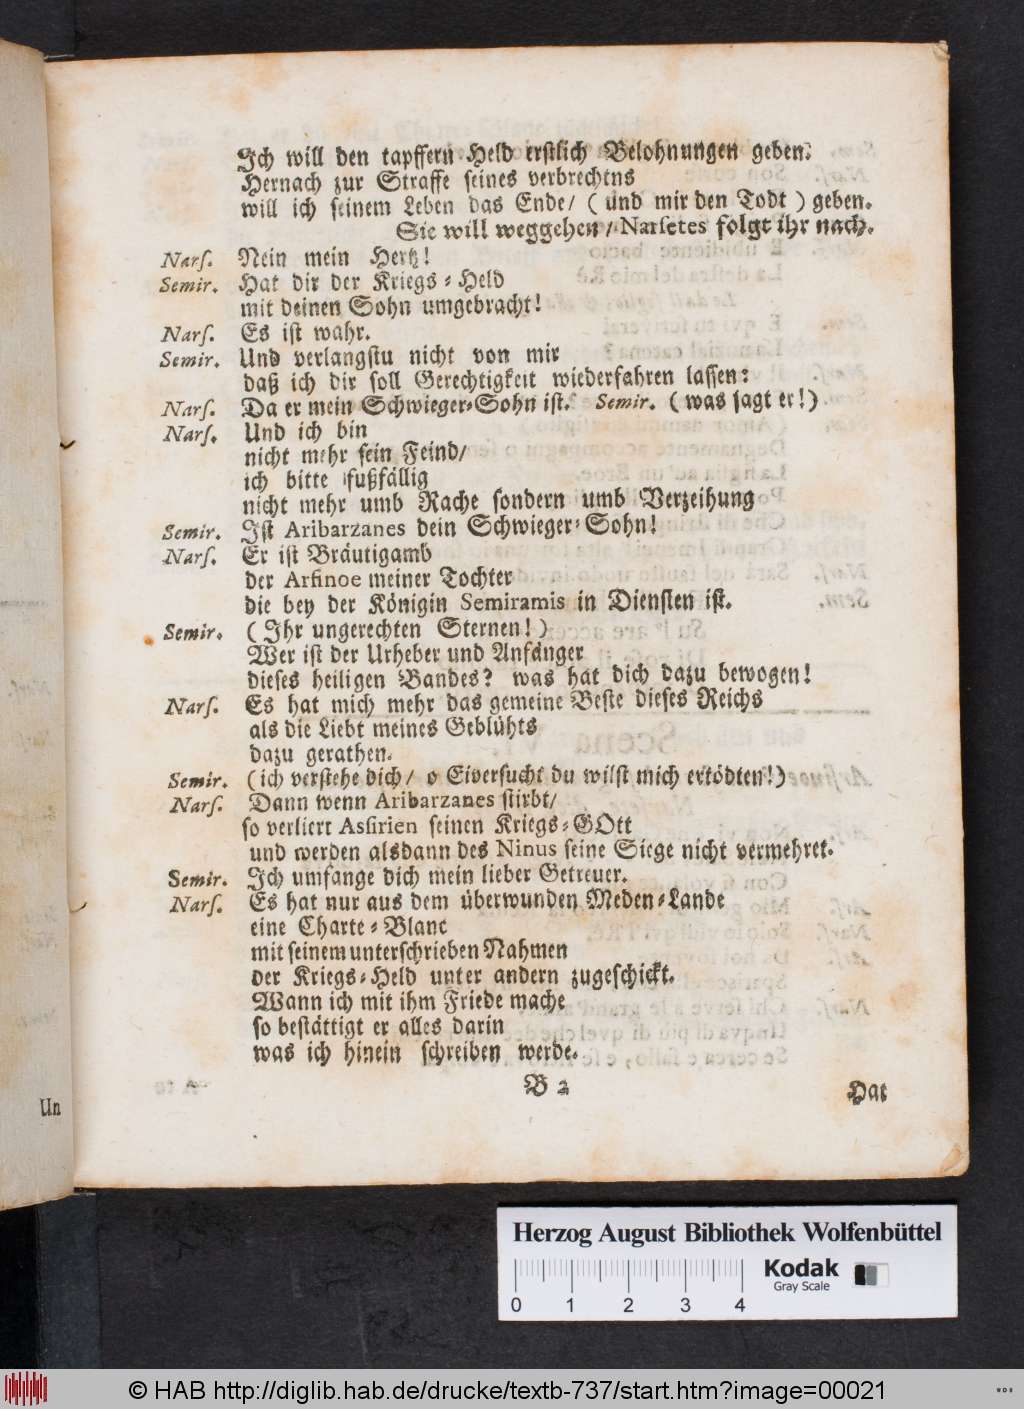 Ich will den tapffern Held erstlich Belohnungen geben.
Hernach zur Straffe seines verbrechtns
will ich seinem Leben das Ende/ ( und mir den Todt ) geben.
Sie will weggehen / Narsetes folgt ihr nach.
Nars. Nein mein Hertz!
Semir. Hat dir der Kriegs-Held
mit deinen Sohn umgebracht!
Nars. Es ist wahr.
Semir. Und verlangstu nicht von mir
daß ich dir soll Gerechtigkeit wiederfahren lassen:
Nars. Da er mein Schwieger-Sohn ist. Semir. ( was sagt er!)
Nars. Und ich bin
nicht mehr sein Feind/
ich bitte fußfällig
nicht mehr umb Rache sondern umb Verzeihung
Semir. Ist Aribarzanes dein Schwieger-Sohn!
Nars. Er ist Bräutigamb
der Arsinoe meiner Tochter
die bey der Königin Semiramis in Diensten ist.
Semir. ( Ihr ungerechten Sternen! )
Wer ist der Urheber und Anfänger
dieses heiligen Bandes? was hat dich dazu bewogen!
Nars. Es hat mich mehr das gemeine Beste dieses Reichs
als die Liebt meines Geblühts
dazu gerathen.
Semir. (ich verstehe dich/ o Eiversucht du wilst mich ertödten!)
Nars. Dann wenn Aribarzanes stirbt/
so verliert Assirien seinen Kriegs-GOtt
und werden alsdann des Ninus seine Siege nicht vermehret.
Semir. Ich umfange dich mein lieber Getreuer.
Nars. Es hat nur aus dem überwunden Meden-Lande
eine Charte-Blanc
mit seinem unterschrieben Nahmen
der Kriegs-Held unter andern zugeschickt.
Wann ich mit ihm Friede mache
so bestättigt er alles darin
was ich hinein schreiben werde.
B 2
Hat
Un
Herzog August Bibliothek Wolfenbüttel
0 1 2 3 4
Kodak
Gray Scale
© HAB http://diglib.hab.de/drucke/textb-737/start.htm?image=00021